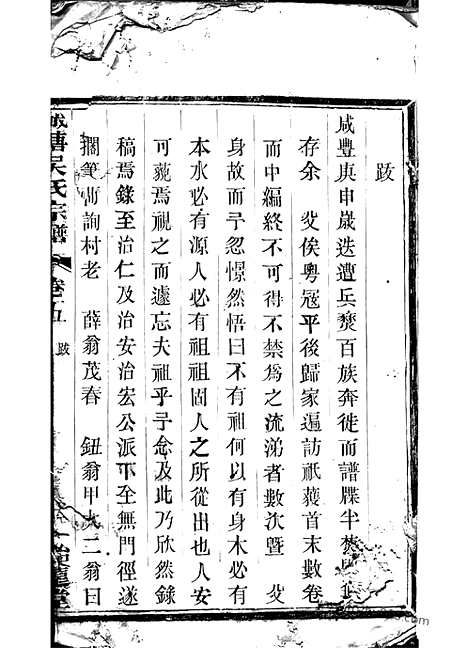 跋
咸豐庚申歲迭遭兵燹百族奔徙而譜牒半焚
存余 父俟粵寇平後歸家遍訪祇獲首末數卷
而中編終不可得不禁為之流涕者數次曁 父
身故而予忽憬然悟曰不有祖何以有身木必有
本水必有源人必有祖祖固人之所從出也人安
可藐焉視之而遽忘夫祖乎予念及此乃欣然錄
稿焉錄至治仁及治安治宏公派下至無門徑遂
擱筆而詢村老 薛翁茂春 鈕翁甲大二翁曰
塘吳氏宗譜 卷五 跋 龍堂